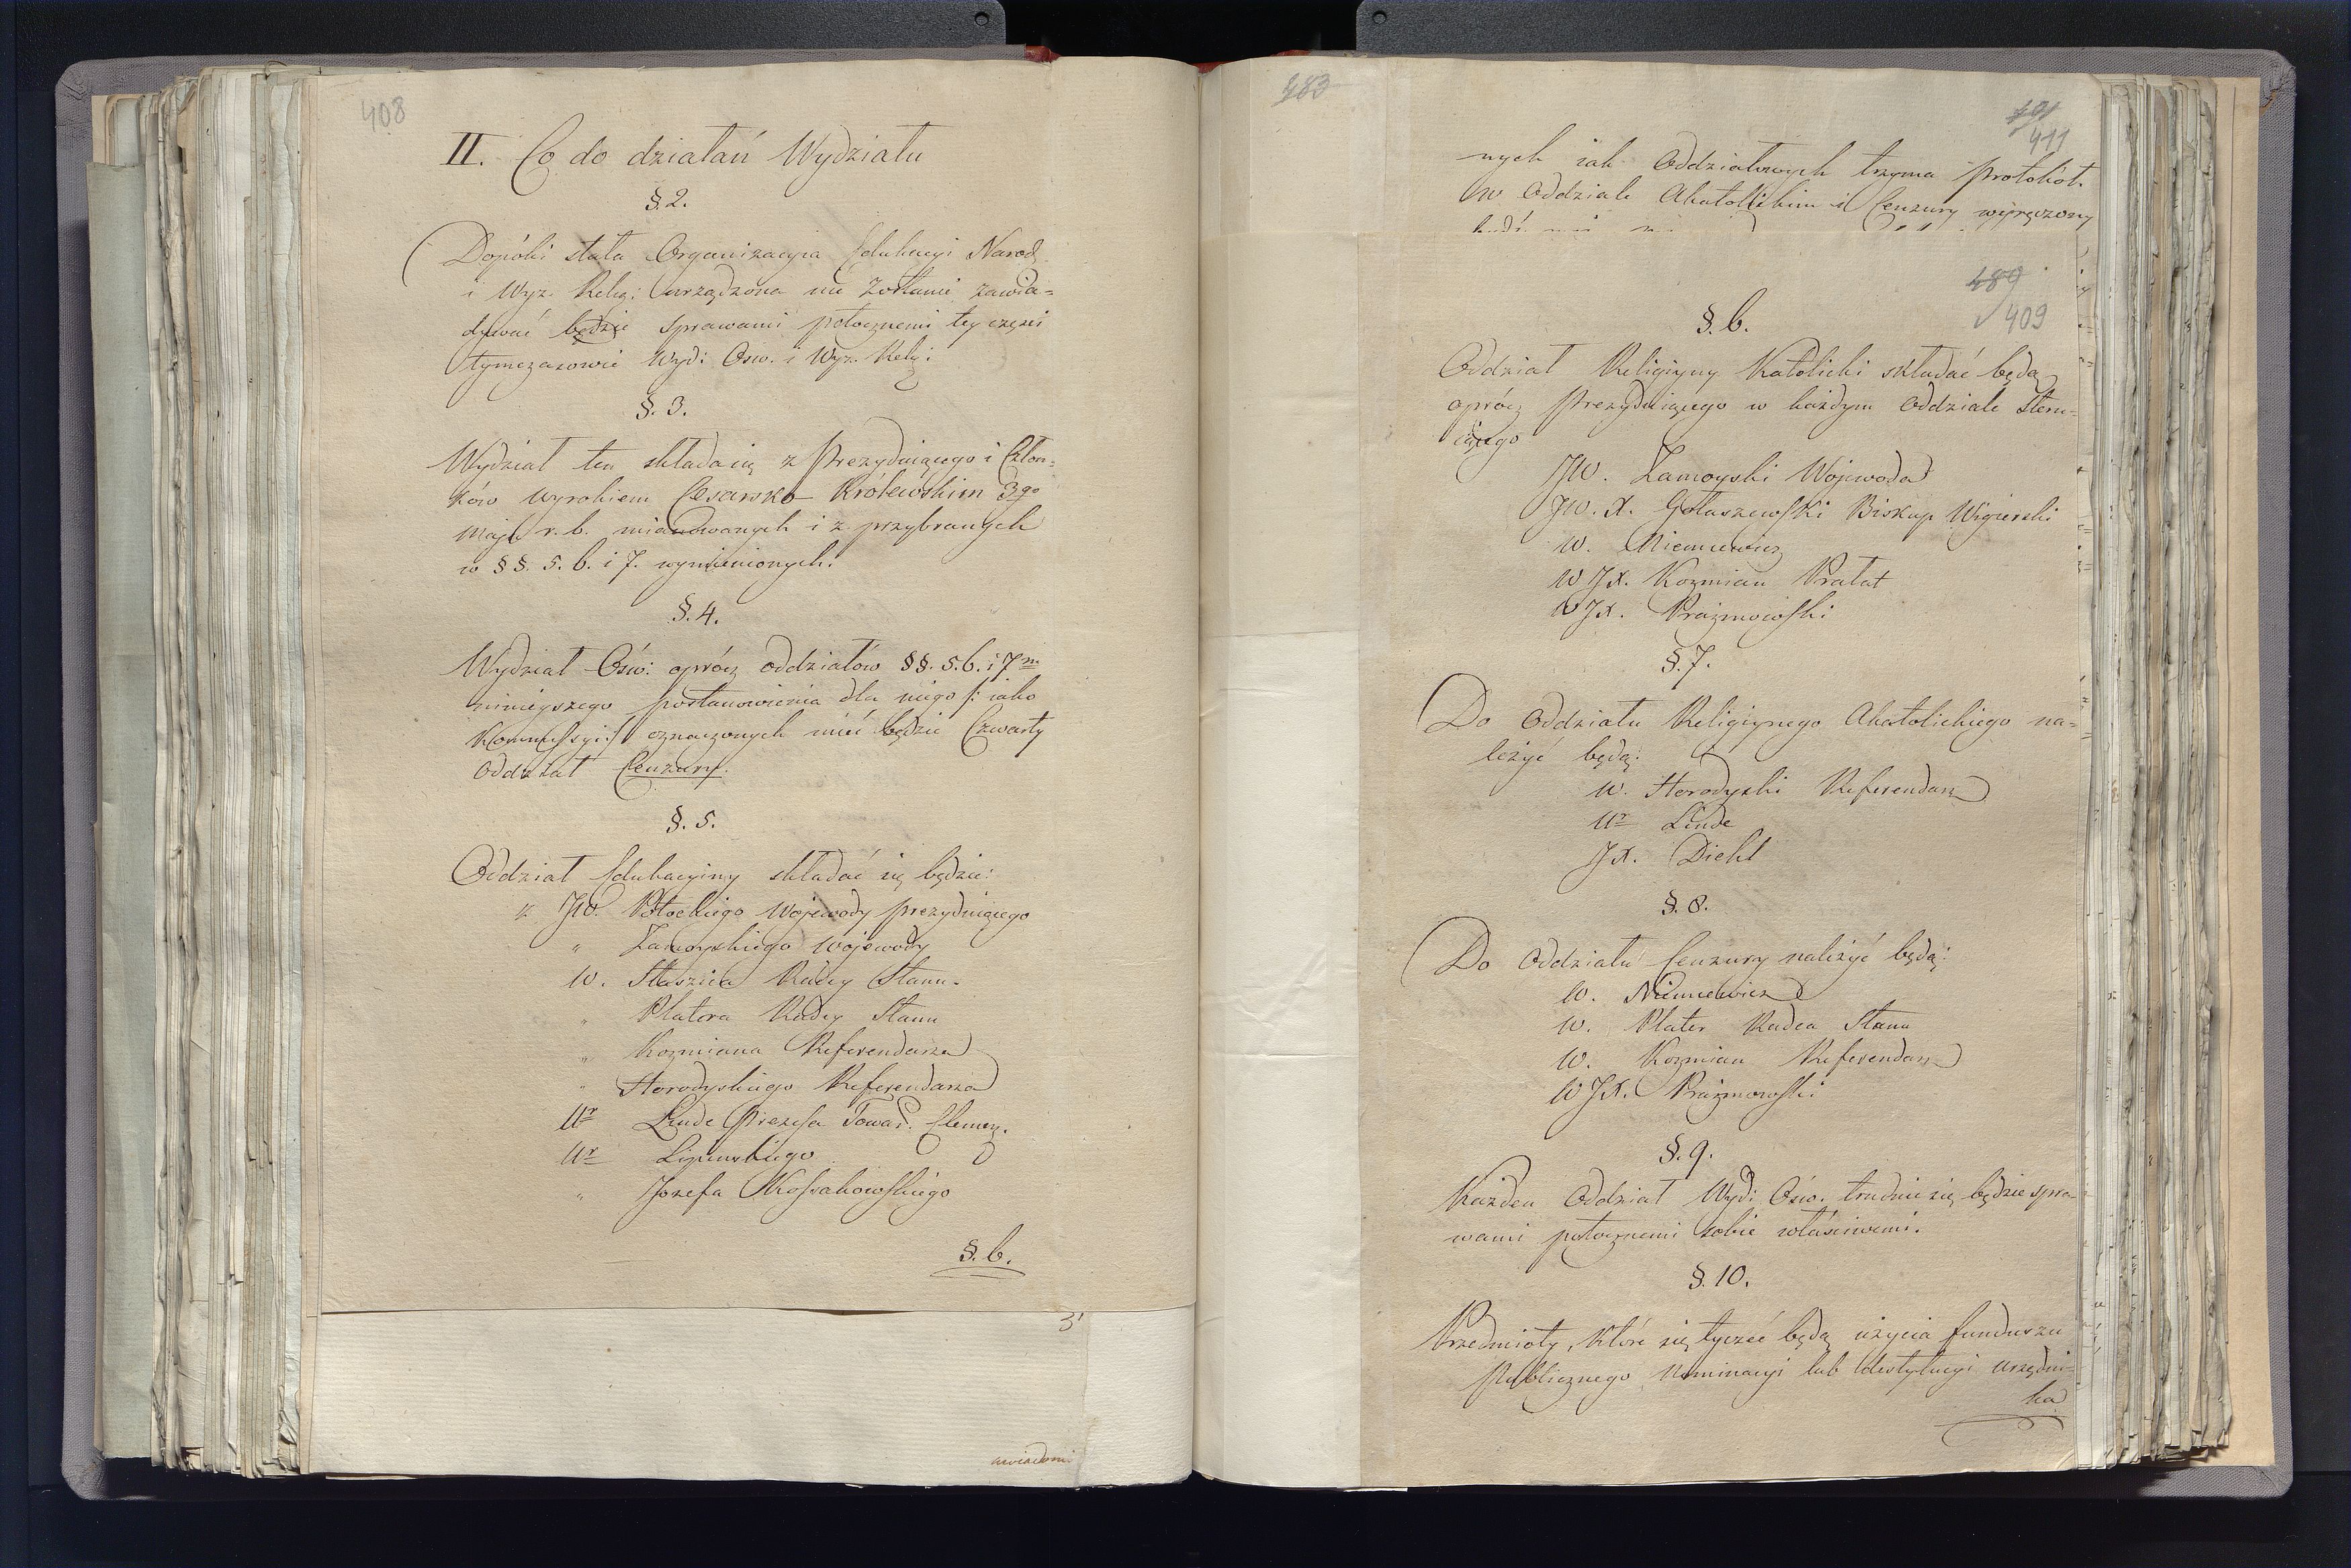 408
II. Co do działań Wydziału
§.2.
Dopóki stała Organizacyia Edukacyi Narod.
i Wyz. Relig: urządzona nie zostanie zawia-
dywać będzie sprawami potocznemi tey części
tymczasowie Wyd: Ośw. i Wyz. Relig:
§. 3.
Wydział ten składa się z Prezyduiącego i Człon-
ków wyrokiem Cesarsko-Królewskim 3go
maja r. b. mianowanych i z przybranych
w §§. 5. 6. i 7. wymienionych.
§. 4.
Wydział Ośw: oprócz oddziałów §§. 5. 6. i 7m
ninieyszego postanowienia dla niego /: iako
Kommissyi :/ oznaczonych mieć będzie Czwarty
Oddział Cenzury.
§. 5.
Oddział Edukacyiny składać się będzie:
z JW. Potockiego Wojewody prezyduiącego
" Zamoyskiego Wojewody
W. Staszica Radcy Stanu.
" Platera Radcy Stanu
" Kozmiana Referendarza
" Horodyskiego Referendarza
Ur Linde Prezesa Towar. Elemen.
Ur Lipinskiego
" Jozefa Kossakowskiego
§. 6.
uwiadomi
483
401
411
nych iak Oddziałowych trzyma Protokół.
W Oddziale Akatolickim i Cenzury wyręczony
489
409
§. 6.
Oddział Religiyny Katolicki składać będą
oprócz Prezyduiącego w każdym Oddziale steru-
iącego
JW. Zamoyski Wojewoda
JW. X. Gołaszewski Biskup Wigierski
W. Niemcewicz
W JX. Kozmian Prałat
W JX. Prażmowski
§. 7.
Do Oddziału Religiynego Akatolickiego na-
leżyć będą:
W. Horodyski Referendarz
Ur Linde
JX. Diehl
§. 8.
Do Oddziału Cenzury należyć będą:
W. Niemcewicz
W. Plater Radca Stanu
W. Kozmian Referendarz
W JX. Prażmowski
§. 9.
Każden Oddział Wyd: Ośw. trudnić się będzie spra-
wami potocznemi sobie właściwemi.
§. 10.
Przedmioty, które się tyczeć będą użycia funduszu
Publicznego, Nominacyi lub destytucyi urzędni-
ka